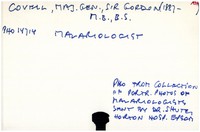 COVELL, MAJ. GEN., SIR GORDON (1887-
M.B., B.S.
PHO 14714
MALARIOLOGIST
PHO FROM COLLECTION
OF PORTR. PHOTOS OF
MALARIOLOGISTS
SENT BY DR. SHUTE,
HORTON HOSP. EPSOM